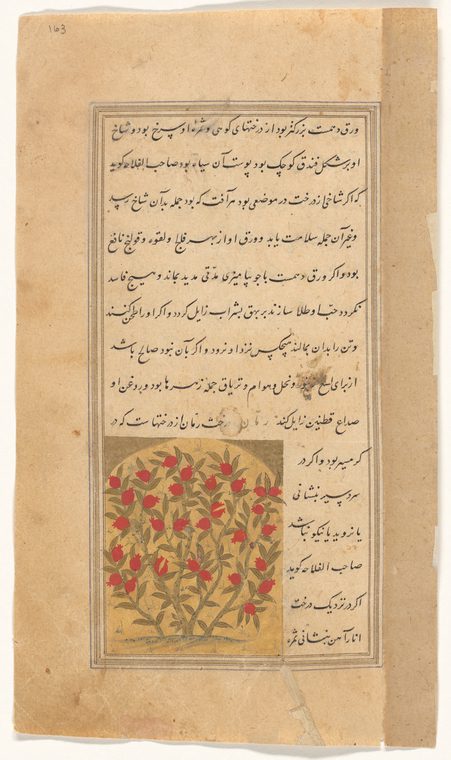 ۱۶۳
ورق درخت بزرگتر بود از درختهای کوهی و ثمره او سرخ بود و شاخ
او بر شکل فندق کوچک بود پوست آن سیاه بود صاحب الفلاحه کوید
که اکر شاخی از درخت در موضعی بود هر آفت که بود جمله بدان شاخ رسد
و غیر آن جمله سلامت یابد و ورق او از بهر فالج و لقوه و قولنج نافع
بود و اکر ورق درخت با جو بیامیزی مدتی مدید بماند و هیچ فاسد
نکردد حب او طلا سازند بر بهق بشراب زایل کردد و اکر او را طحن کنند
و تن را بدان بمالند هیچکس نزد او نرود و اکر بآن نبود صالح باشد
از برای لسع و نحل و هوام و تریاق جمله زهرها بود و بروغن او
صداع زایل کند رمان درخت رمان از درختهاست که در
کرمسیر بود و اکر در
سردسیر بنشانی
یا نروید یا نیکو نباشد
صاحب الفلاحه کوید
اکر در نزدیک درخت
انار آهن بنشانی ثمره